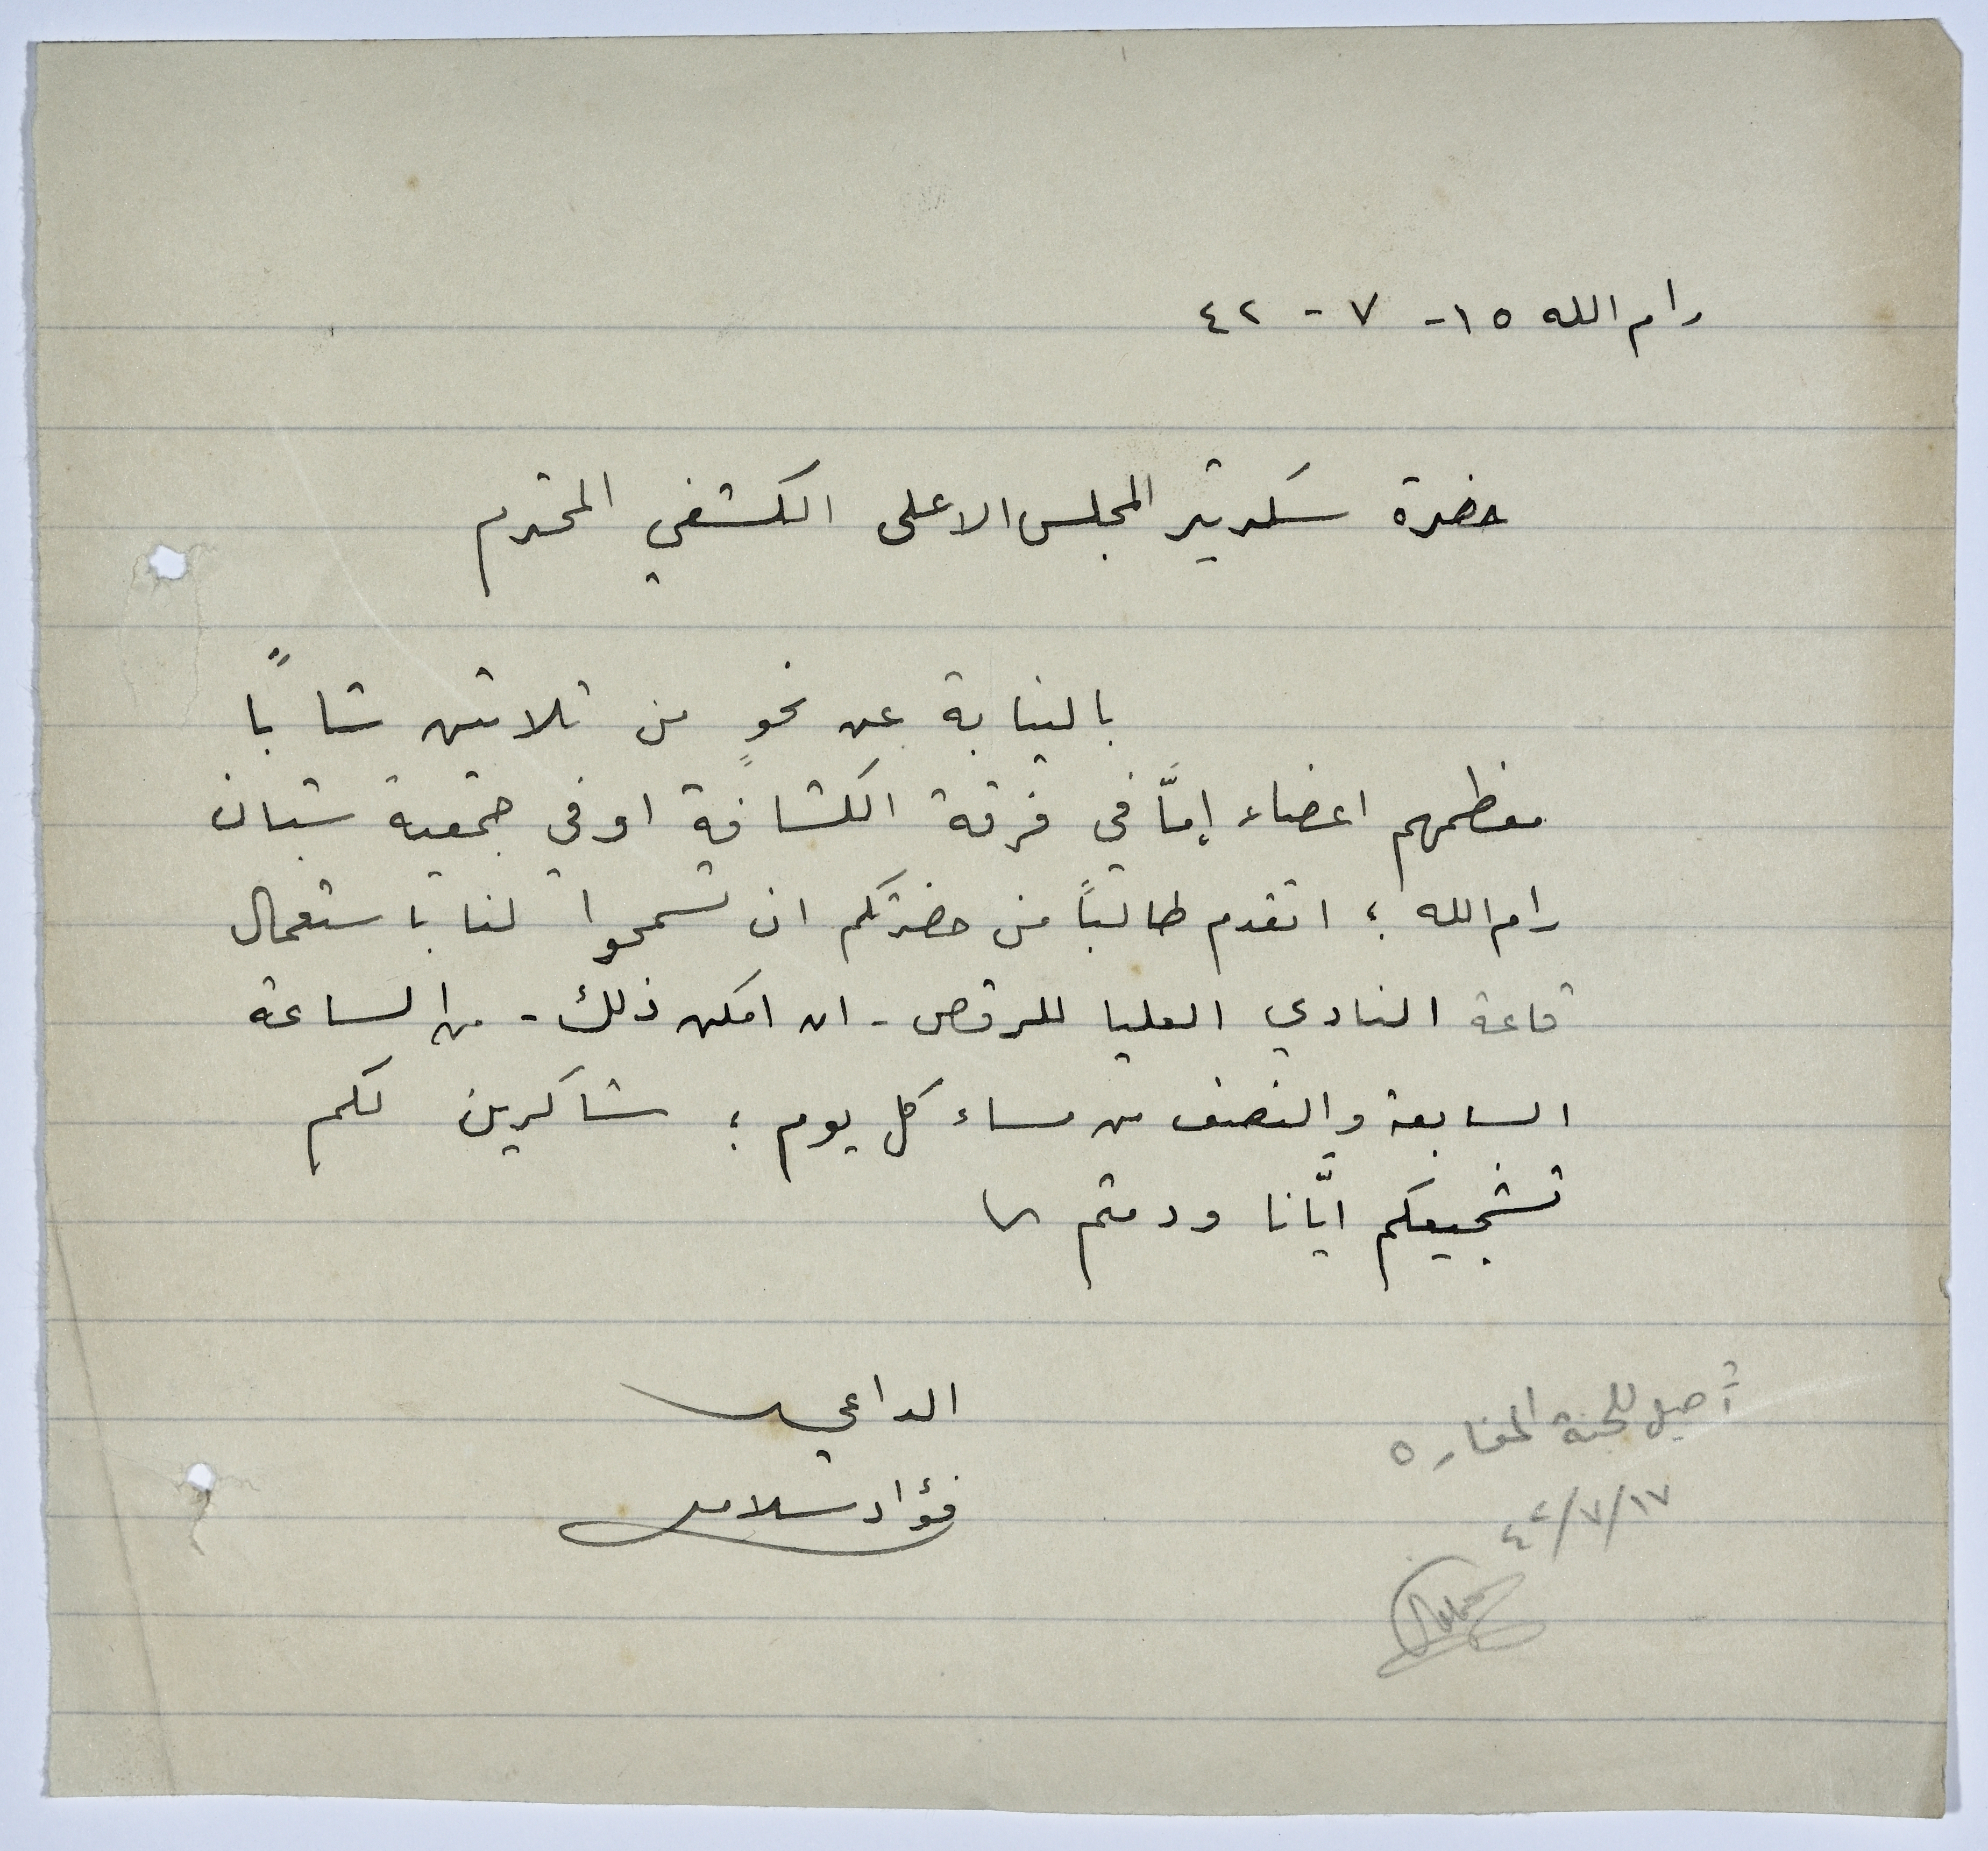 رام الله ١٥ - ٧ - ٤٢
حضرة سكرتير المجلس الاعلى الكشفي المحترم
بالنيابة عن نحوٍ من ثلاثين شابًا
معظمهم اعضاء إمّا في فرقة الكشافة او في جمعية شبان
رام الله ؛ اتقدم طالبًا من حضرتكم ان تسمحوا لنا باستعمال
قاعة النادي العليا للرقص - ان امكن ذلك - من الساعة
السابعة والنصف من مساء كل يوم ؛ شاكرين لكم
تشجيعكم ايّانا ودمتم
الداعي
فؤاد سلامه
للجنة
٤٢/٧/١٧